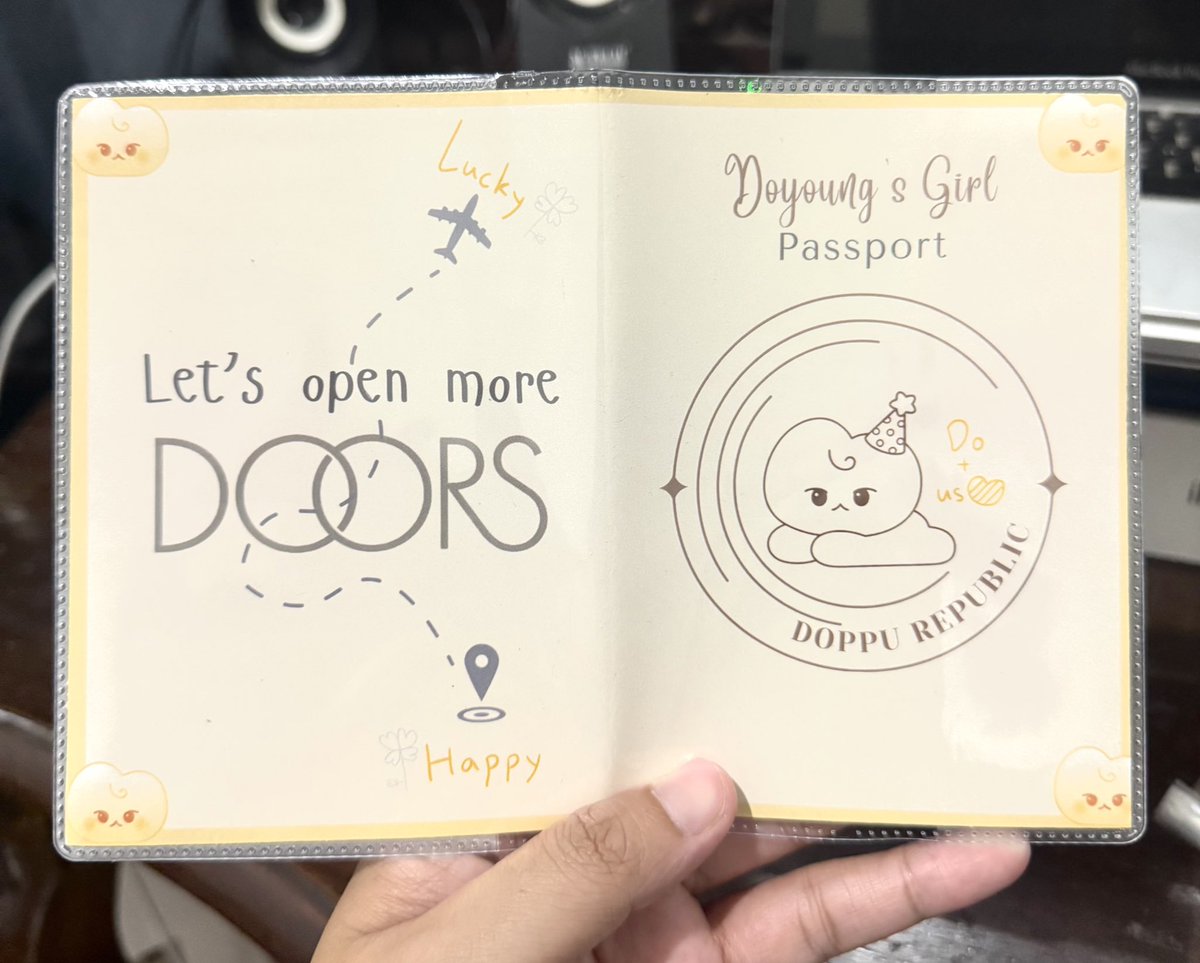 Lucky
Let's open more
DOORS
Happy
Doyoung's Girl
Passport
Do
+
us
DOPPU REPUBLIC